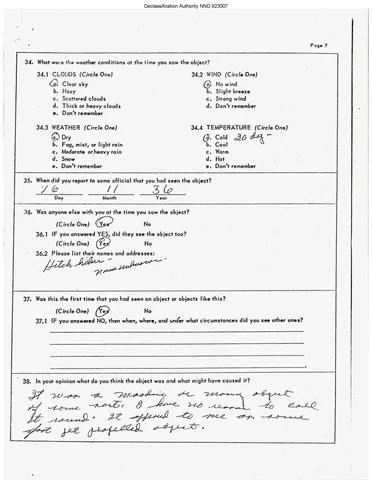 Declassification Authority NND 923007
Page 7
34. What were the weather conditions at the time you saw the object?
34.1 CLOUDS (Circle One) 34.2 WIND (Circle One)
a. Clear sky a. No wind
b. Hazy b. Slight breeze
c. Scattered clouds c. Strong wind
d. Thick or heavy clouds d. Don't remember
e. Don't remember
34.3 WEATHER (Circle One) 34.4 TEMPERATURE (Circle One)
a. Dry a. Cold 20 deg -
b. Fog, mist, or light rain b. Cool
c. Moderate or heavy rain c. Warm
d. Snow d. Hot
e. Don't remember e. Don't remember
35. When did you report to some official that you had seen the object?
16 11 56
Day Month Year
36. Was anyone else with you at the time you saw the object?
(Circle One) Yes No
36.1 IF you answered YES, did they see the object too?
(Circle One) Yes No
36.2 Please list their names and addresses:
Hitch hiker -
name unknown.
37. Was this the first time that you had seen an object or objects like this?
(Circle One) Yes No
37.1 IF you answered NO, then when, where, and under what circumstances did you see other ones?
38. In your opinion what do you think the object was and what might have caused it?
It was a machine or object
of some sort. I have no reason to call
it round. It to me as some
jet propelled object.